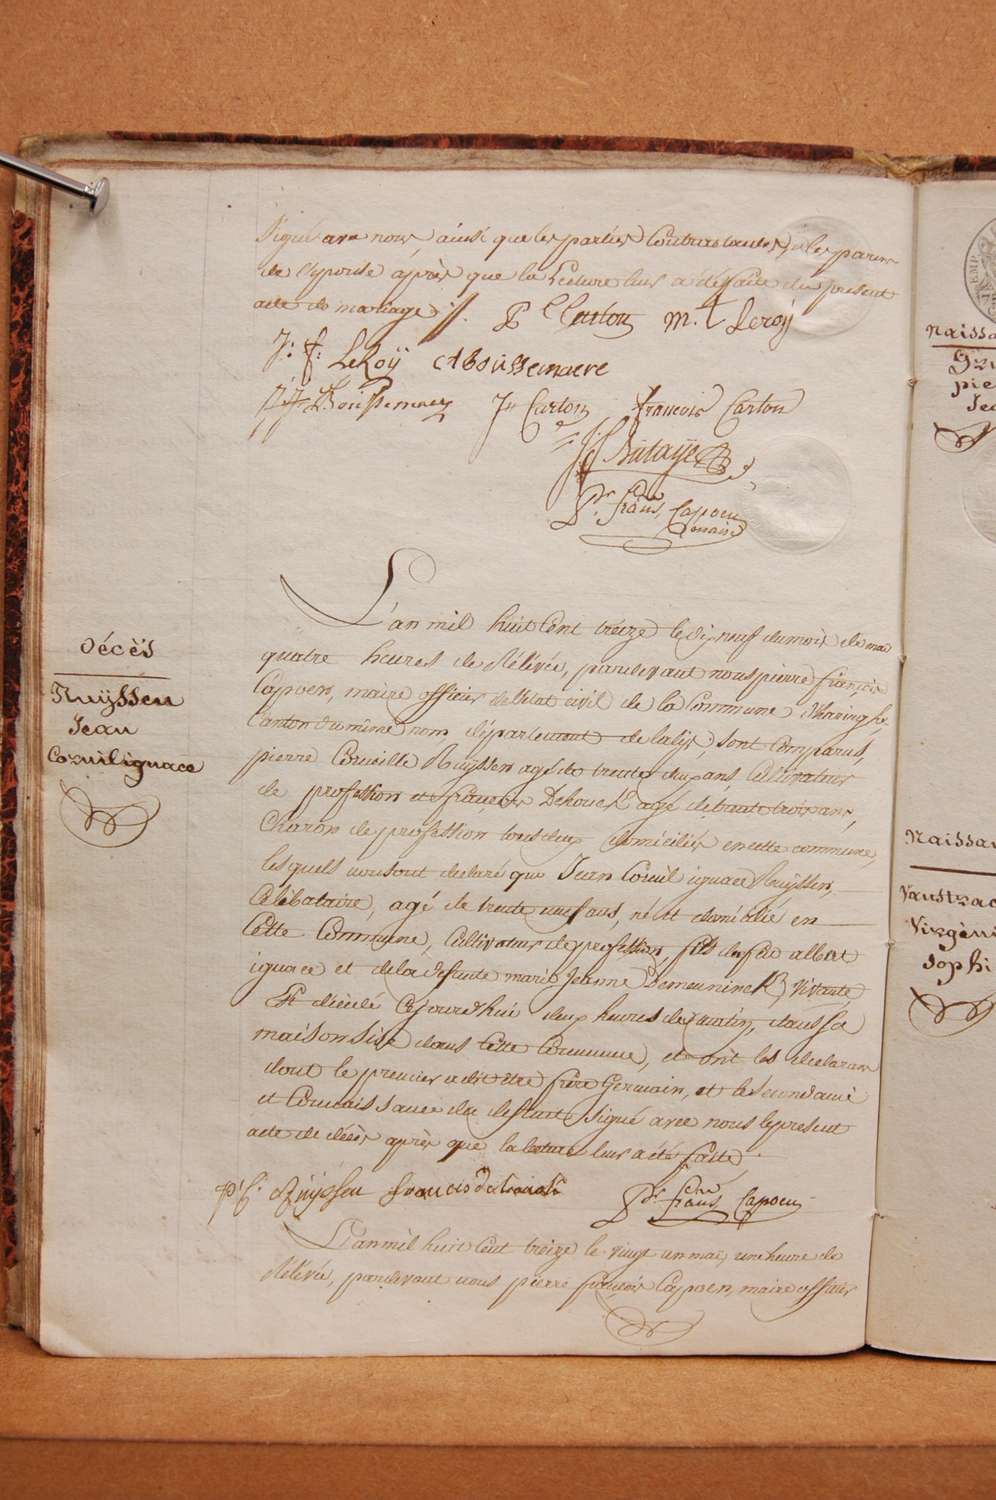 Signé avec nous ainsi que les parties Contractantes, & les parens
de l'epouse après que la Lecture leur a été faite du present
acte de mariage ∫∫. P L Carton M. L Leroÿ
J: F: LeRoÿ C A Boussemaere
J J Boussemaer Jn Carton francois Carton
Butaÿe
Pr. frans. Capoen
maire
L'an mil huit Cent treize le dix neuf du mois de mai
quatre heures de Rélévée, pardevant nous pierre françois
Capoen, maire officier de l'état civil de la Commune
Canton du même nom département de la lys, sont comparus,
pierre Corneille Ruÿssen agé de trente deux ans, Cultivateur
de profession et françois Dehouck agé de trente trois ans,
Charon de profession tous deux domiciliés en cette commune,
lesquels nous ont declaré que Jean Corneil ignace Ruÿssen,
Célébataire, agé de trente neuf ans, né et domicilié en
Cette Commune, Cultivateur de profession, fils de feu albert
ignace et de la defunte marie Jeanne Demeuninck, Vivante,
Est décédé Cejourd'hui deux heures du matin, dans sa
maison sise dans Cette Commune, et ont les declarans
dont le premier a dit être frère Germain, et le second ami
et Connaissance du defunt Signé avec nous le present
acte de décès après que la lecture leur a été faite.
P: C. Ruÿssen francois dehouck Pr. frans Capoen
L'an mil huit Cent treize le vingt un mai, une heure de
Rélévée, pardevant nous pierre françois Capoen, maire officier
Décès
Ruÿssen
Jean
Corneil ignace
Naissa
pie
Jea
Naissan
Vanstrac
Virgéni
Sophi